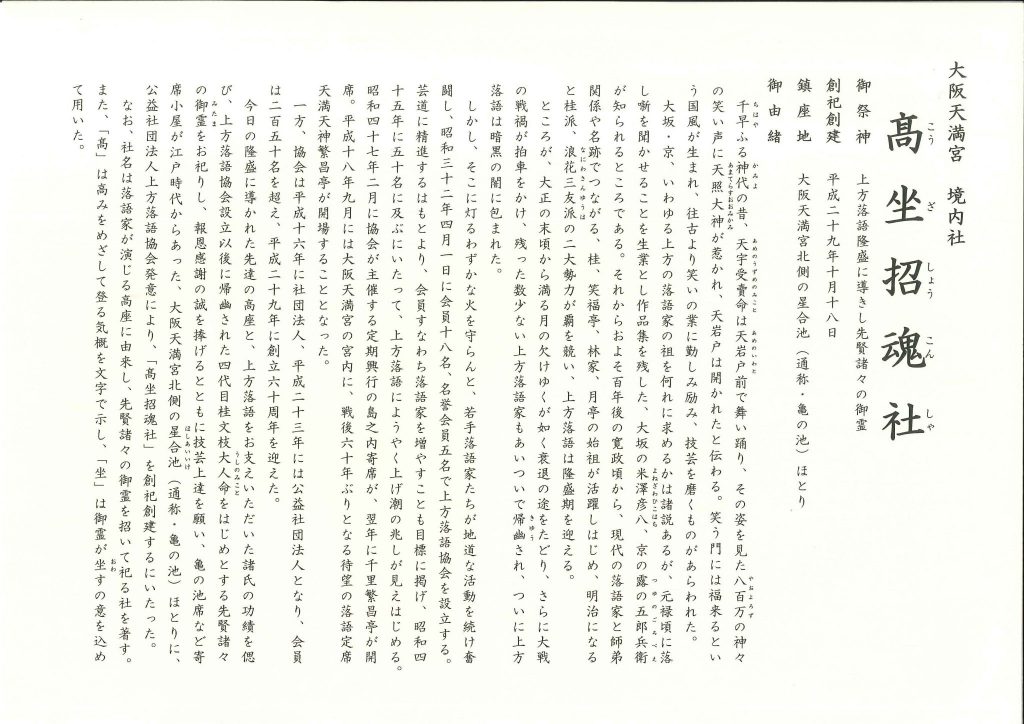 大阪天満宮　境内社
髙坐招魂社
こうざしょうこんしゃ
御祭神　上方落語隆盛に導きし先賢諸々の御霊
創祀創建　平成二十九年十月十八日
鎮座地　大阪天満宮北側の星合池（通称・亀の池）ほとり
御由緒
千早ふる神代の昔、天宇受賣命は天岩戸前で舞い踊り、その姿を見た八百万の神々
ちはや　かみよ　あめのうずめのみこと　あめのいわと　やおよろず
の笑い声に天照大神が惹かれ、天岩戸は開かれたと伝わる。笑う門には福来るとい
あまてらすおおみかみ
う国風が生まれ、往古より笑いの業に勤しみ励み、技芸を磨くものがあらわれた。
大坂・京、いわゆる上方の落語家の祖を何れに求めるかは諸説あるが、元禄頃に落
し噺を聞かせることを生業とし作品集を残した、大坂の米澤彦八、京の露の五郎兵衛
よねざわひこはち　つゆのごろべえ
が知られるところである。それからおよそ百年後の寛政頃から、現代の落語家と師弟
関係や名跡でつながる、桂、笑福亭、林家、月亭の始祖が活躍しはじめ、明治になる
と桂派、浪花三友派の二大勢力が覇を競い、上方落語は隆盛期を迎える。
なにわさんゆうは
ところが、大正の末頃から満る月の欠けゆくが如く衰退の途をたどり、さらに大戦
の戦禍が拍車をかけ、残った数少ない上方落語家もあいついで帰幽され、ついに上方
きゆう
落語は暗黒の闇に包まれた。
しかし、そこに灯るわずかな火を守らんと、若手落語家たちが地道な活動を続け奮
闘し、昭和三十二年四月一日に会員十八名、名誉会員五名で上方落語協会を設立する。
芸道に精進するはもとより、会員すなわち落語家を増やすことも目標に掲げ、昭和四
十五年に五十名に及ぶにいたって、上方落語にようやく上げ潮の兆しが見えはじめる。
昭和四十七年二月に協会が主催する定期興行の島之内寄席が、翌年に千里繁昌亭が開
席。平成十八年九月には大阪天満宮の宮内に、戦後六十年ぶりとなる待望の落語定席
天満天神繁昌亭が開場することとなった。
一方、協会は平成十六年に社団法人、平成二十三年には公益社団法人となり、会員
は二百五十名を超え、平成二十九年に創立六十周年を迎えた。
今日の隆盛に導かれた先達の高座と、上方落語をお支えいただいた諸氏の功績を偲
び、上方落語協会設立以後に帰幽された四代目桂文枝大人命をはじめとする先賢諸々
うしのみこと
の御霊をお祀りし、報恩感謝の誠を捧げるとともに技芸上達を願い、亀の池席など寄
みたま
席小屋が江戸時代からあった、大阪天満宮北側の星合池（通称・亀の池）ほとりに、
ほしあいいけ
公益社団法人上方落語協会発意により、「髙坐招魂社」を創祀創建するにいたった。
なお、社名は落語家が演じる高座に由来し、先賢諸々の御霊を招いて祀る社を著す。
また、「髙」は高みをめざして登る気概を文字で示し、「坐」は御霊が坐すの意を込め
おわ
て用いた。